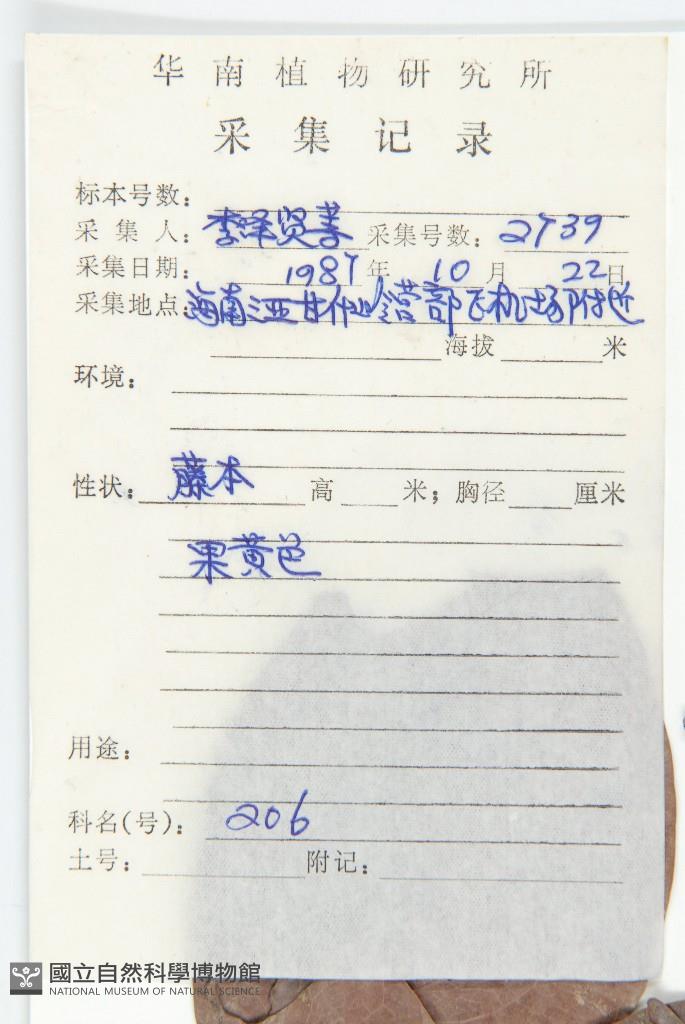 华南植物研究所
采集记录
标本号数:
采集人: 李泽贤等 采集号数: 2739
采集日期: 1987年10月22日
采集地点: 海南三亚甘什岭营部飞机场附近
海拔 米
环境:
性状: 藤本 高 米; 胸径 厘米
果黄色
用途:
科名(号): 206
土号: 附记:
國立自然科學博物館
NATIONAL MUSEUM OF NATURAL SCIENCE